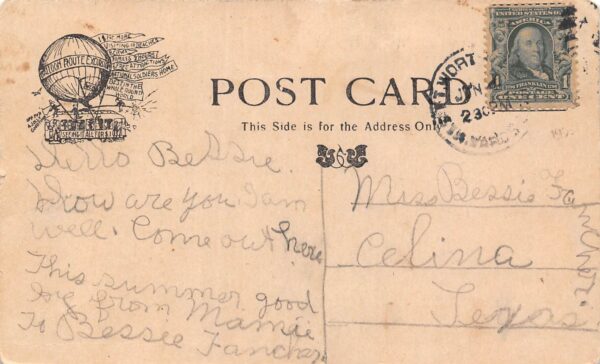 BALLOON ROUTE EXCURSION
POST CARD
This Side is for the Address Only
UNITED STATES OF AMERICA
FRANKLIN
ONE CENT
2 30
Hello Bessie.
How are you I am
well. Come out here
This summer good
by from Mamie
To Bessie Fancher
Miss Bessie Fancher
Celina
Texas